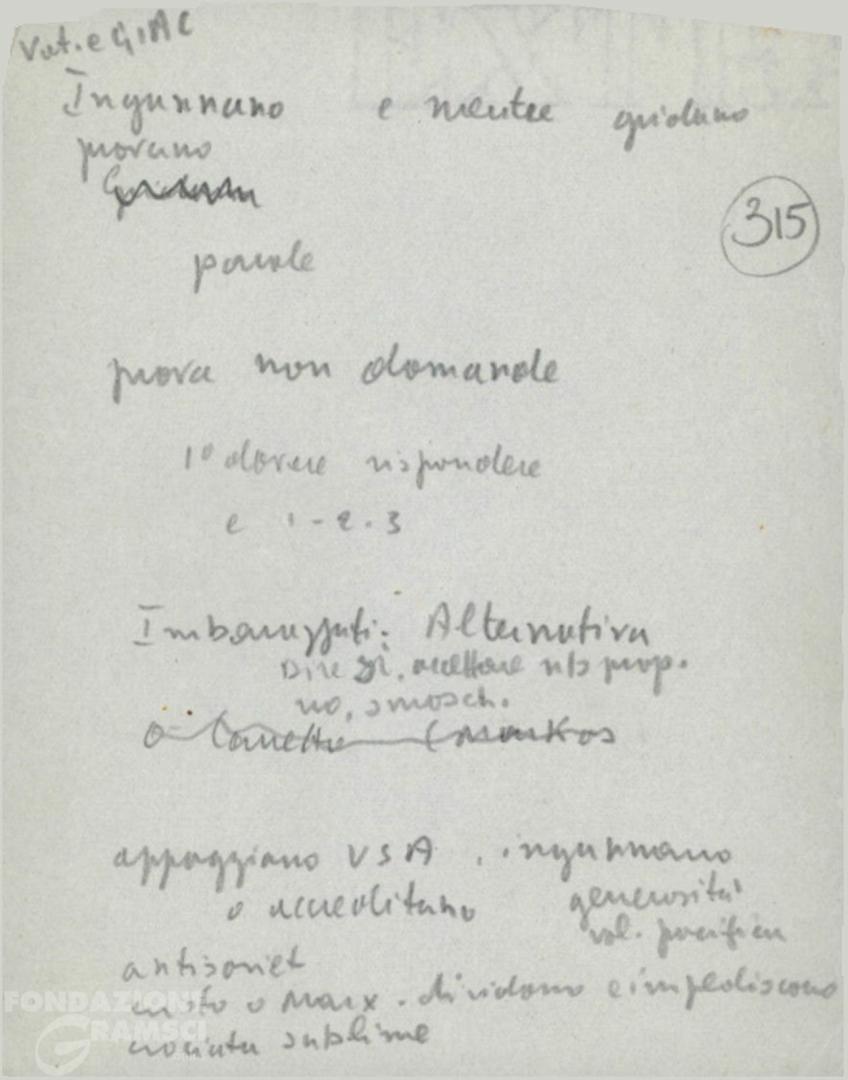 Vat. e GIAC
Ingannano e mentre gridano
provano
315
parole
prova non domande
1º dovere rispondere
e 1-2-3
Imbarazzati: Alternativa
Dire sì, accettare ns prop.
no, smasch.
o (Markos
appoggiano USA, ingannano
o accreditano generosità
vol. pacifica
antisoviet
Cristo o Marx. dividono e impediscono
crociata sublime
FONDAZIONE
GRAMSCI